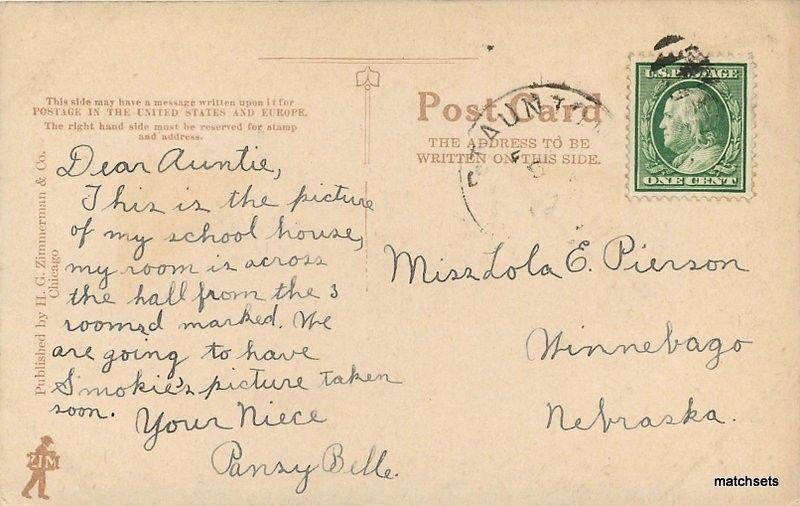 This side may have a message written upon it for
POSTAGE IN THE UNITED STATES AND EUROPE.
The right hand side must be reserved for stamp
and address.
Post Card
THE ADDRESS TO BE
WRITTEN ON THIS SIDE.
U.S. POSTAGE
ONE CENT
STAUNTON
Published by H. G. Zimmerman & Co.
Chicago
Dear Auntie,
This is the picture
of my school house,
my room is across
the hall from the 3
rooms marked. We
are going to have
Smokie's picture taken
soon.
Your Niece
Pansy Belle.
Miss Lola E. Pierson
Winnebago
Nebraska.
ZIM
matchsets